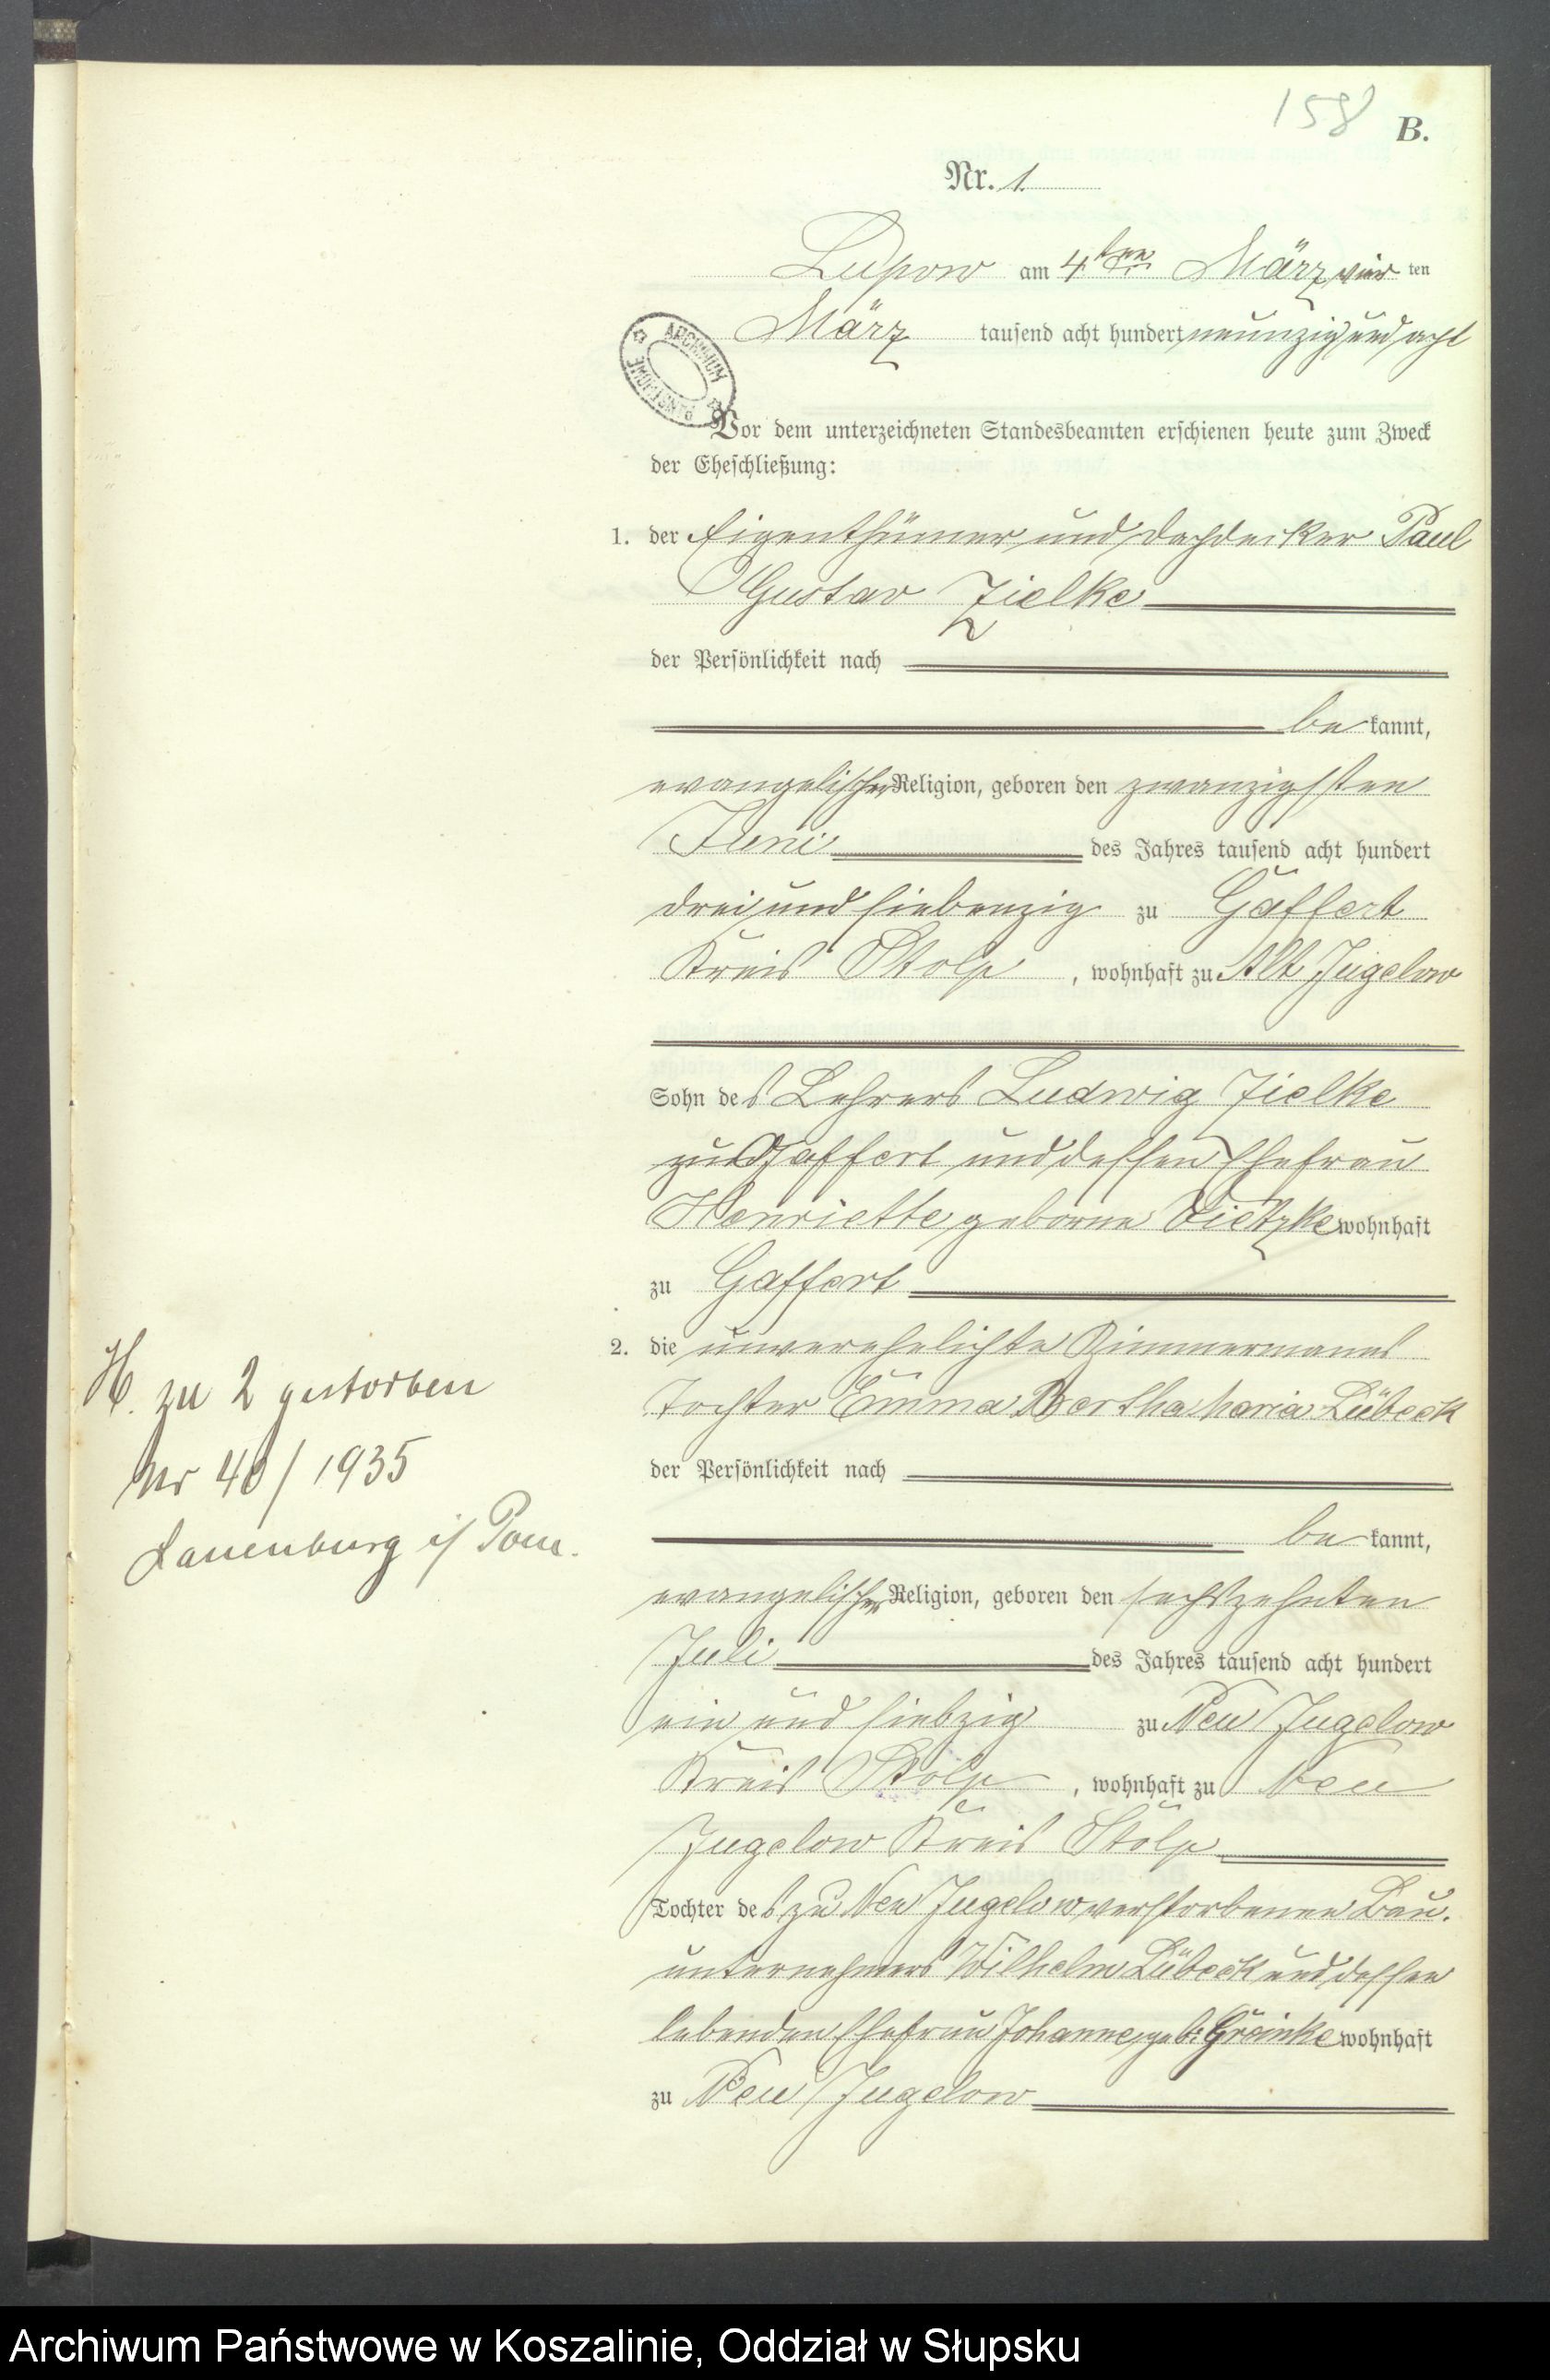 158
B.
Nr. 1.
Lupow am 4ten März vier ten
März tausend acht hundert neunzig und acht
ARCHIWUM PAŃSTWOWE
Vor dem unterzeichneten Standesbeamten erschienen heute zum Zweck
der Eheschließung:
1. der Eigenthümer und Dachdecker Paul
Gustav Zielke
der Persönlichkeit nach
be kannt,
evangelischer Religion, geboren den zwanzigsten
Juni des Jahres tausend acht hundert
drei und siebenzig zu Gaffert
Kreis Stolp, wohnhaft zu Alt Jugelow
Sohn des Lehrers Ludwig Zielke
zu Gaffert und dessen Ehefrau
Henriette geborne Dietzke wohnhaft
zu Gaffert
2. die unverehelichte Zimmermanns
tochter Emma Bertha Maria Lübeck
der Persönlichkeit nach
be kannt,
evangelischer Religion, geboren den sechszehnten
Juli des Jahres tausend acht hundert
ein und siebzig zu Neu Jugelow
Kreis Stolp, wohnhaft zu Neu
Jugelow Kreis Stolp
Tochter des zu Neu Jugelow verstorbenen Bau.
unternehmers Wilhelm Lübeck und dessen
lebenden Ehefrau Johanne, geb: Greinke wohnhaft
zu Neu Jugelow
H. zu 2 gestorben
Nr 40/1935
Lauenburg i/ Pom.
Archiwum Państwowe w Koszalinie, Oddział w Słupsku